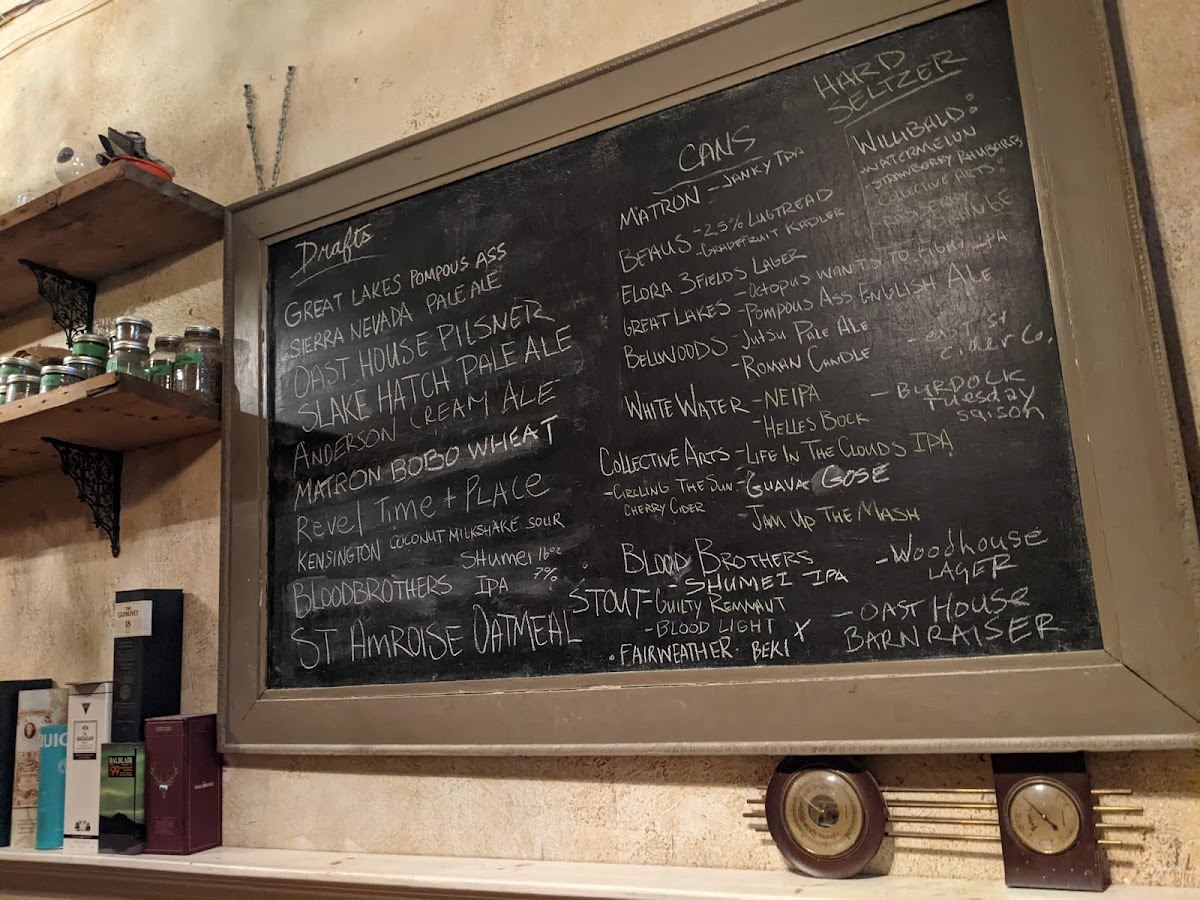 Drafts
GREAT LAKES POMPOUS ASS
SIERRA NEVADA PALE ALE
OAST HOUSE PILSNER
SLAKE HATCH PALE ALE
ANDERSON CREAM ALE
MATRON BOBO WHEAT
Revel Time + PLACE
KENSINGTON COCONUT MILKSHAKE SOUR
BLOODBROTHERS SHUMEI 16oz
IPA 7%
ST AMROISE OATMEAL STOUT
CANS
MATRON - JANKY IPA
BEAUS - 2.5% LUGTREAD
- GRAPEFRUIT RADLER
ELORA 3 FIELDS LAGER
GREAT LAKES - OCTOPUS WANTS TO FIGHT IPA
- POMPOUS ASS ENGLISH ALE
BELLWOODS - JUTSU PALE ALE
- ROMAN CANDLE
WHITE WATER - NEIPA
- HELLES BOCK
COLLECTIVE ARTS - LIFE IN THE CLOUDS IPA
- CIRCLING THE SUN - GUAVA GOSE
CHERRY CIDER
- JAM UP THE MASH
BLOOD BROTHERS
- SHUMEI IPA
- GUILTY REMNAUT
- BLOOD LIGHT X
. FAIRWEATHER BEKI
HARD
SELTZER
WILLIBALD:
- WATERMELON
- STRAWBERRY RHUBARB
COLLECTIVE ARTS:
- EAST ST
CIDER CO.
- BURDOCK
TUESDAY
SAISON
- WOODHOUSE
LAGER
- OAST HOUSE
BARN RAISER
THE
GLENLIVET
18
MACALLAN
BALBLAIR
99